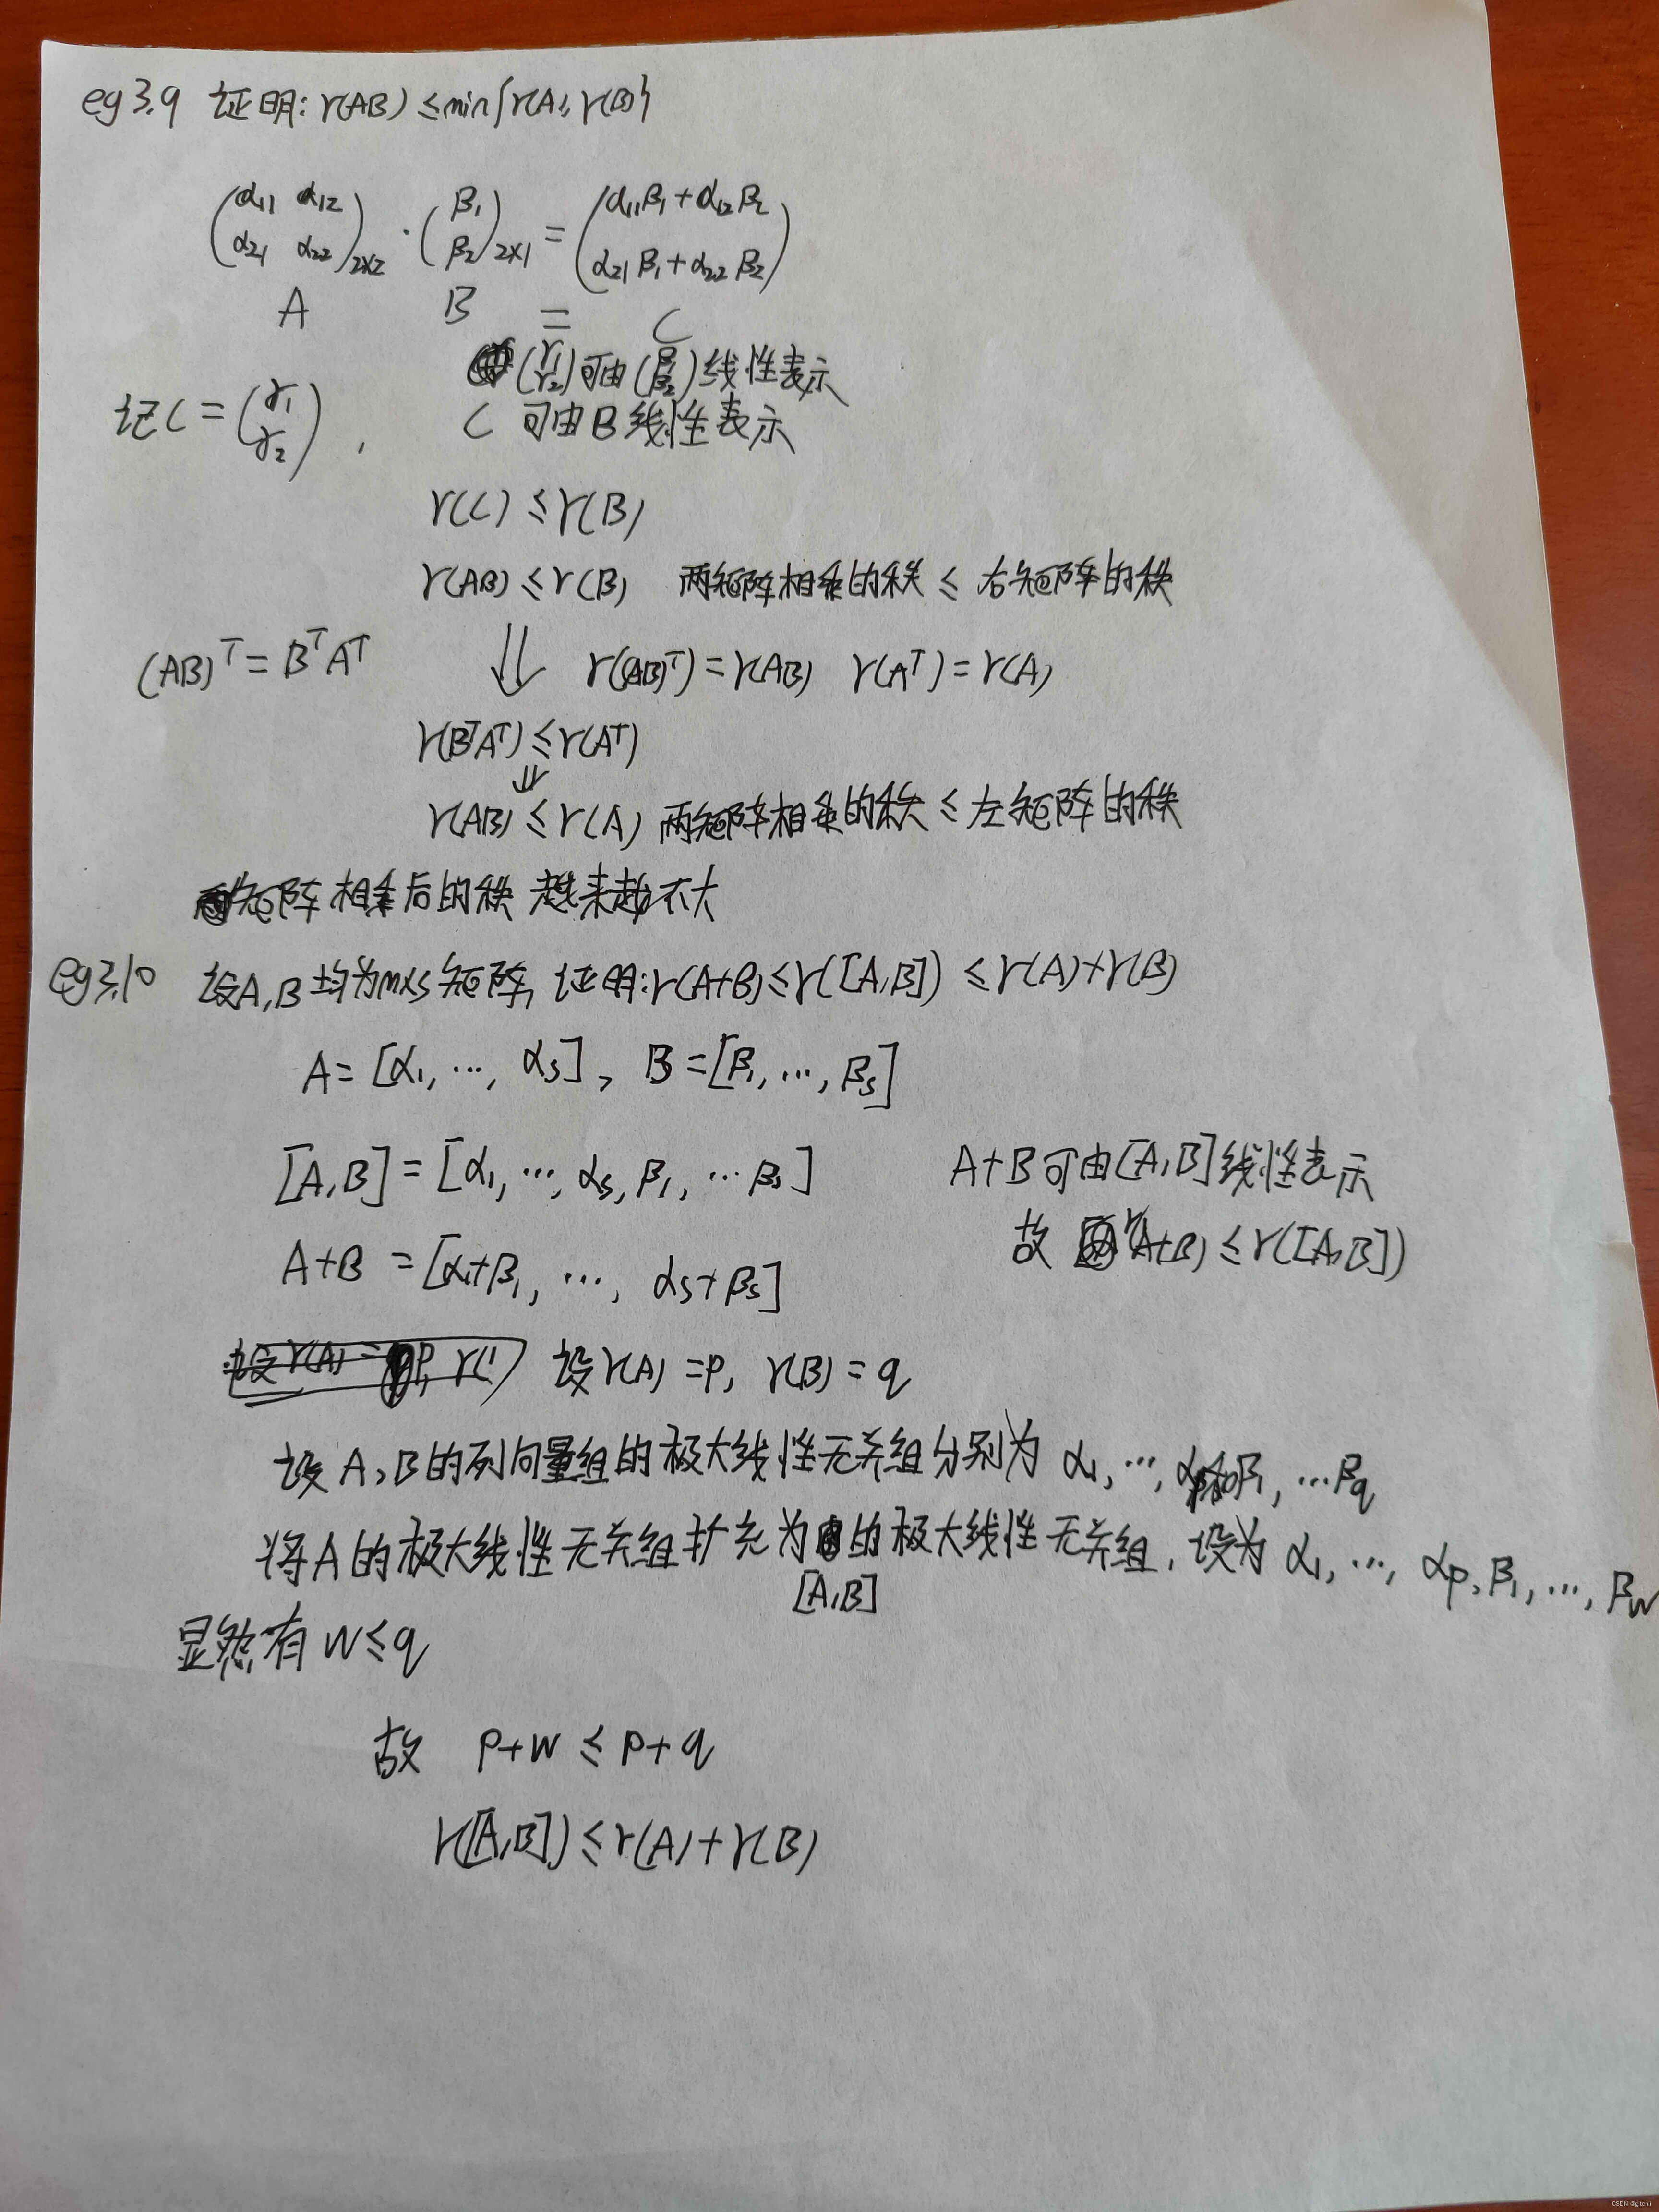 eg 3.9 证明: r(AB) ≤ min{r(A), r(B)}
(α11 α12
α21 α22)2×2 · (β1
β2)2×1 = (α11β1+α12β2
α21β1+α22β2)
A B = C
(γ1
γ2)可由(β1
β2)线性表示
记C = (γ1
γ2), C 可由B线性表示
r(C) ≤ r(B)
r(AB) ≤ r(B) 两矩阵相乘的秩 ≤ 右矩阵的秩
(AB)^T = B^T A^T ⇓ r((AB)^T) = r(AB) r(A^T) = r(A)
r(B^T A^T) ≤ r(A^T)
⇓
r(AB) ≤ r(A) 两矩阵相乘的秩 ≤ 左矩阵的秩
矩阵相乘后的秩 越来越不大
eg 3.10 设A,B均为m×s矩阵, 证明: r(A+B) ≤ r([A,B]) ≤ r(A)+r(B)
A = [α1, ⋯, αs], B = [β1, ⋯, βs]
[A,B] = [α1, ⋯, αs, β1, ⋯ βs] A+B可由[A,B]线性表示
故 r(A+B) ≤ r([A,B])
A+B = [α1+β1, ⋯, αs+βs]
设r(A) = p, r(B) = q
设A,B的列向量组的极大线性无关组分别为 α1, ⋯, αp和β1, ⋯ βq
将A的极大线性无关组扩充为[A,B]的极大线性无关组, 设为 α1, ⋯, αp, β1, ⋯, βw
显然有 w ≤ q
故 p+w ≤ p+q
r([A,B]) ≤ r(A)+r(B)
CSDN @gitenll